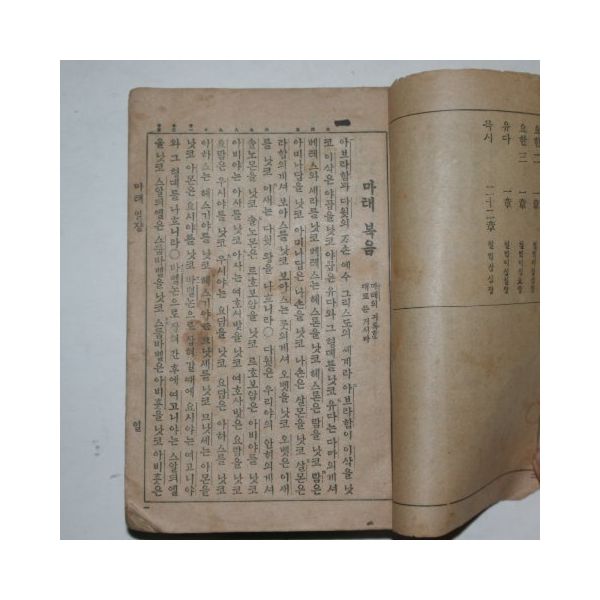 요한二 一章
요한三 一章
유다 一章
묵시 二十二章
마태 복음
마태의 긔록한
대로 쓴 거시라
아브라함과 다윗의 자손 예수 그리스도의 세계라 아브라함이 이삭을 낫
코 이삭은 야곱을 낫코 야곱은 유다와 그 형데를 낫코 유다는 다마의게셔
베레스와 세라를 낫코 베레스는 헤스론을 낫코 헤스론은 람을 낫코 람은
아미나답을 낫코 아미나답은 나손을 낫코 나손은 살몬을 낫코 살몬은
라합의게셔 보아스를 낫코 보아스는 룻의게셔 오벳을 낫코 오벳은 이새
를 낫코 이새는 다윗 왕을 나흐니라○다윗은 우리야의 안해의게셔
솔노몬을 낫코 솔노몬은 르호보암을 낫코 르호보암은 아비야를 낫코
아비야는 아사를 낫코 아사는 여호사밧을 낫코 여호사밧은 요람을 낫코
요람은 우시야를 낫코 우시야는 요담을 낫코 요담은 아하스를 낫코
아하스는 헤스기야를 낫코 헤스기야는 므낫세를 낫코 므낫세는 아몬을
낫코 아몬은 요시야를 낫코 바벨논으로 잡혀 갈 때에 요시야는 여고니야
와 그 형데를 나흐니라○바벨논으로 잡혀 간 후에 여고니야는 스알듸엘
을 낫코 스알듸엘은 스룹바벨을 낫코 스룹바벨은 아비훗을 낫코 아비훗은
마태 일쟝
일